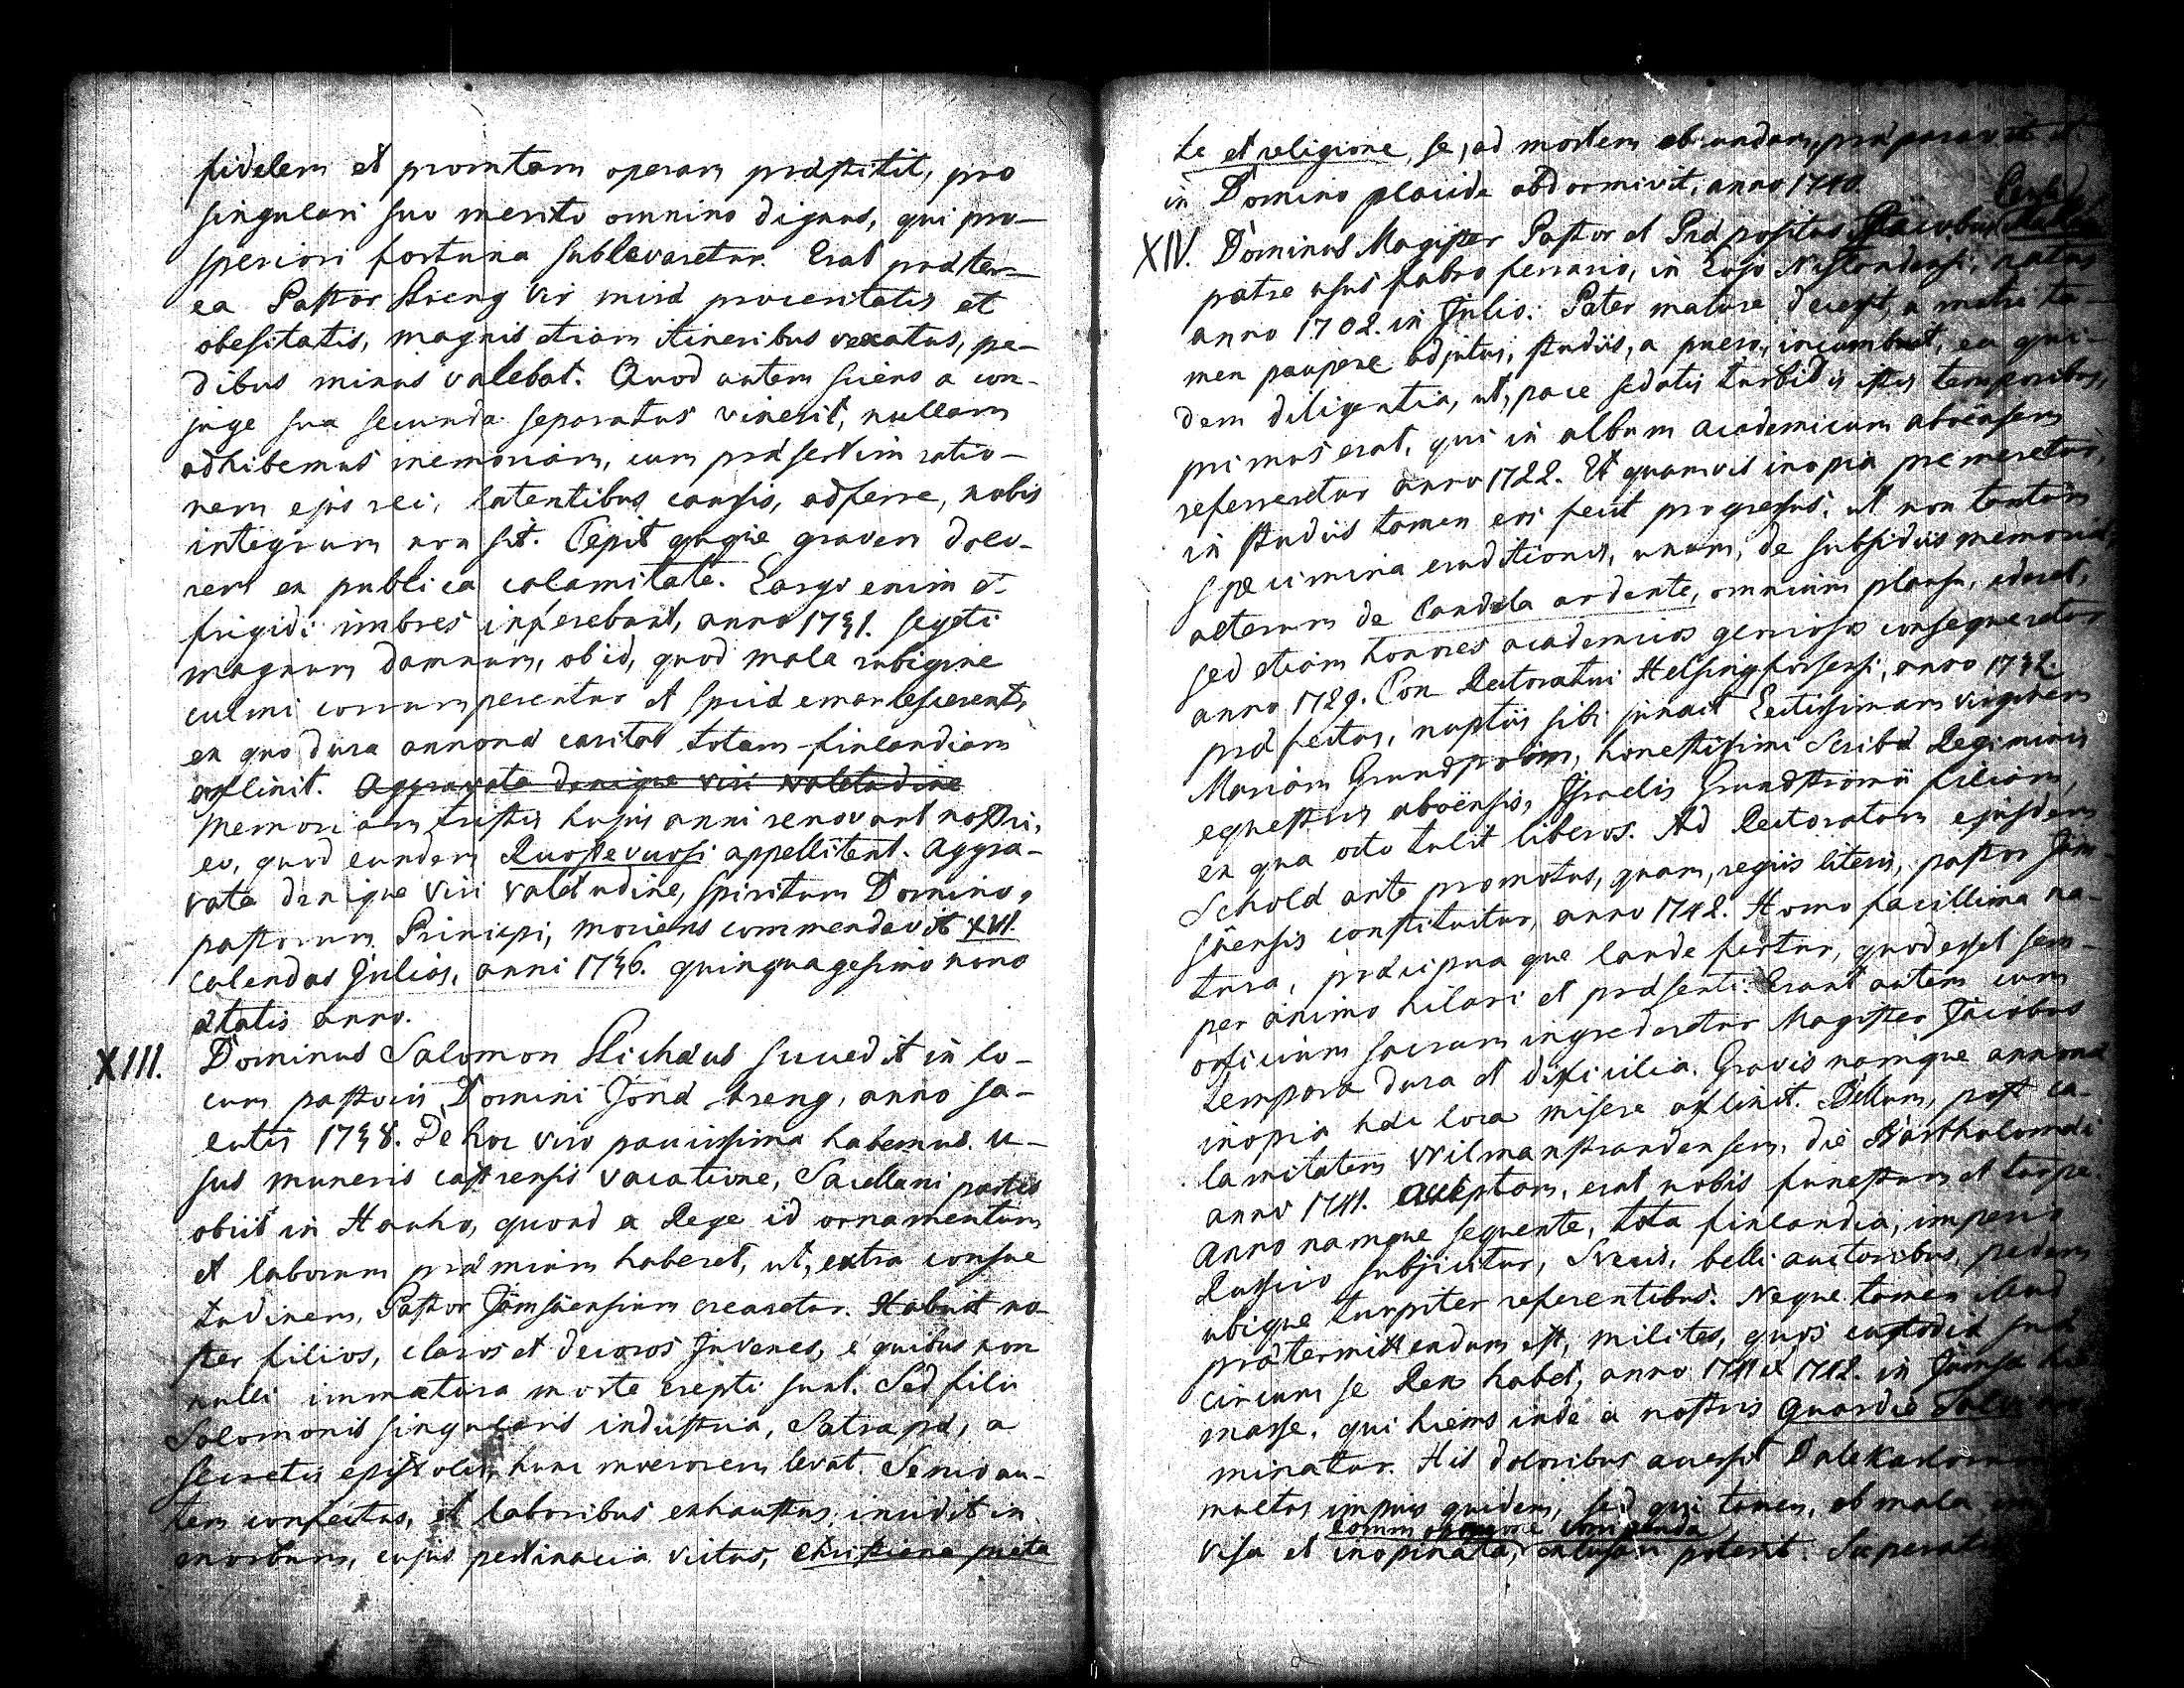 fidelem et promtam operam præstitit, pro
singulari suo merito omnino dignus, qui pro-
speriori fortuna sublevaretur. Erat præter-
ea Pastor Streng vir miræ proceritatis et
obesitatis, magnis etiam itineribus vexatus, pe-
dibus minus valebat. Quod autem sciens a con-
juge sua secunda separatus vixerit, nullam
adhibemus memoriam, cum præsertim ratio-
nem ejus rei, latentibus causis, adferre, nobis
integrum non sit. Cepit quoque gravem dolo-
rem ex publica calamitate. Largi enim et
frigidi imbres inferebant, anno 1731. segeti
magnum damnum, ob id, quod mala rubigine
culmi corrumperentur et spicæ emarcescerent,
ex quo dura annonæ caritas totam finlandiam
afflixit. Aggravata denique viri valetudine
Memoriam tristis hujus anni renovant nostri,
eo, quod eundem Ruostevuosi appellitent. Aggra-
vata denique viri valetudine, spiritum Domino,
pastorum Principi, moriens commendavit XVI.
Calendas Julias, anni 1736. quinquagesimo nono
ætatis anno.
XIII. Dominus Salomon Stichæus succedit in lo-
cum pastoris Domini Jonæ Streng, anno sa-
lutis 1738. De hoc viro paucissima habemus. U-
sus muneris castrensis vacatione, Sacellani partes
obiit in Hauho, quoad a Rege id ornamentum
et laborum præmium haberet, ut, extra consue
tudinem, Pastor Jämsäensium crearetur. Habuit no-
ster filios, claros et decoros Juvenes, e quibus non
nulli immatura morte erepti sunt. Sed filii
Salomonis singularis industria, Satrapæ, a
secretis epistolis, hunc moerorem levat. Senio au-
tem confectus, et laboribus exhaustus, incidit in
morbum, cujus pertinacia victus, christiana pieta
te et religione, se, ad mortem obeundam, præparavit et
in Domino placide obdormivit, anno 1740.
XIV. Dominus Magister Pastor et Præpositus Jacobus
patre usus fabro ferrario, in Lojo Nylandensi, natus
anno 1702. in Julio. Pater mature decessit, a matre ta-
men paupere adjutus, studiis, a puero, incumbuit, ea qui-
dem diligentia, ut, pace sedatis turbidis istis temporibus,
primus erat, qui in album academicum aboënsem
referretur anno 1722. Et quamvis inopia premeretur,
in studiis tamen eos fecit progressus, ut non tantum
specimina eruditionis, unum, de subsidiis memoriæ,
alterum de Candela ardente, omnium plausu, ederet,
sed etiam honores academicos generosos consequeretur
anno 1729. Con Rectoratui Helsingforsensi, anno 1732.
præfectus, nuptiis sibi junxit Lectissimam virginem
Mariam Grundström, honestissimi Scribæ Regiminis
equestris aboënsis, Israelis Grundströmii filiam,
ex qua octo tulit liberos. Ad Rectoratum ejusdem
Scholæ ante promotus, quam, regiis literis, pastor Jäm-
säensis constituitur, anno 1742. Homo facillima na-
tura, præcipua que laude fertur, quod esset sem-
per animo hilari et præsenti. Erant autem cum
officium sacrum ingrederetur Magister Jacobus
tempora dura et difficilia. Gravis namque annonæ
inopia hæc loca misere afflixit. Bellum, post ca-
lamitatem Wilmanstrandensem, die Bartholomæi
anno 1741. acceptam, erat nobis funestum et turpe.
Anno namque sequente, tota finlandia, imperio
Russico subjicitur, Svecis, belli auctoribus, pedem
ubique turpiter referentibus. Neque tamen illud
prætermittendum est, milites, quos custodiæ suæ
circum se Rex habet, anno 1741 et 1742. in Jämsä hie
masse, qui hiems inde a nostris Guardie Talvi no
minatur. His doloribus accessit Dalekarlorum
motus impius quidem, sed qui tamen, ob mala
commoramine compendia
visa et inopinata, excusari poterit. Superatis